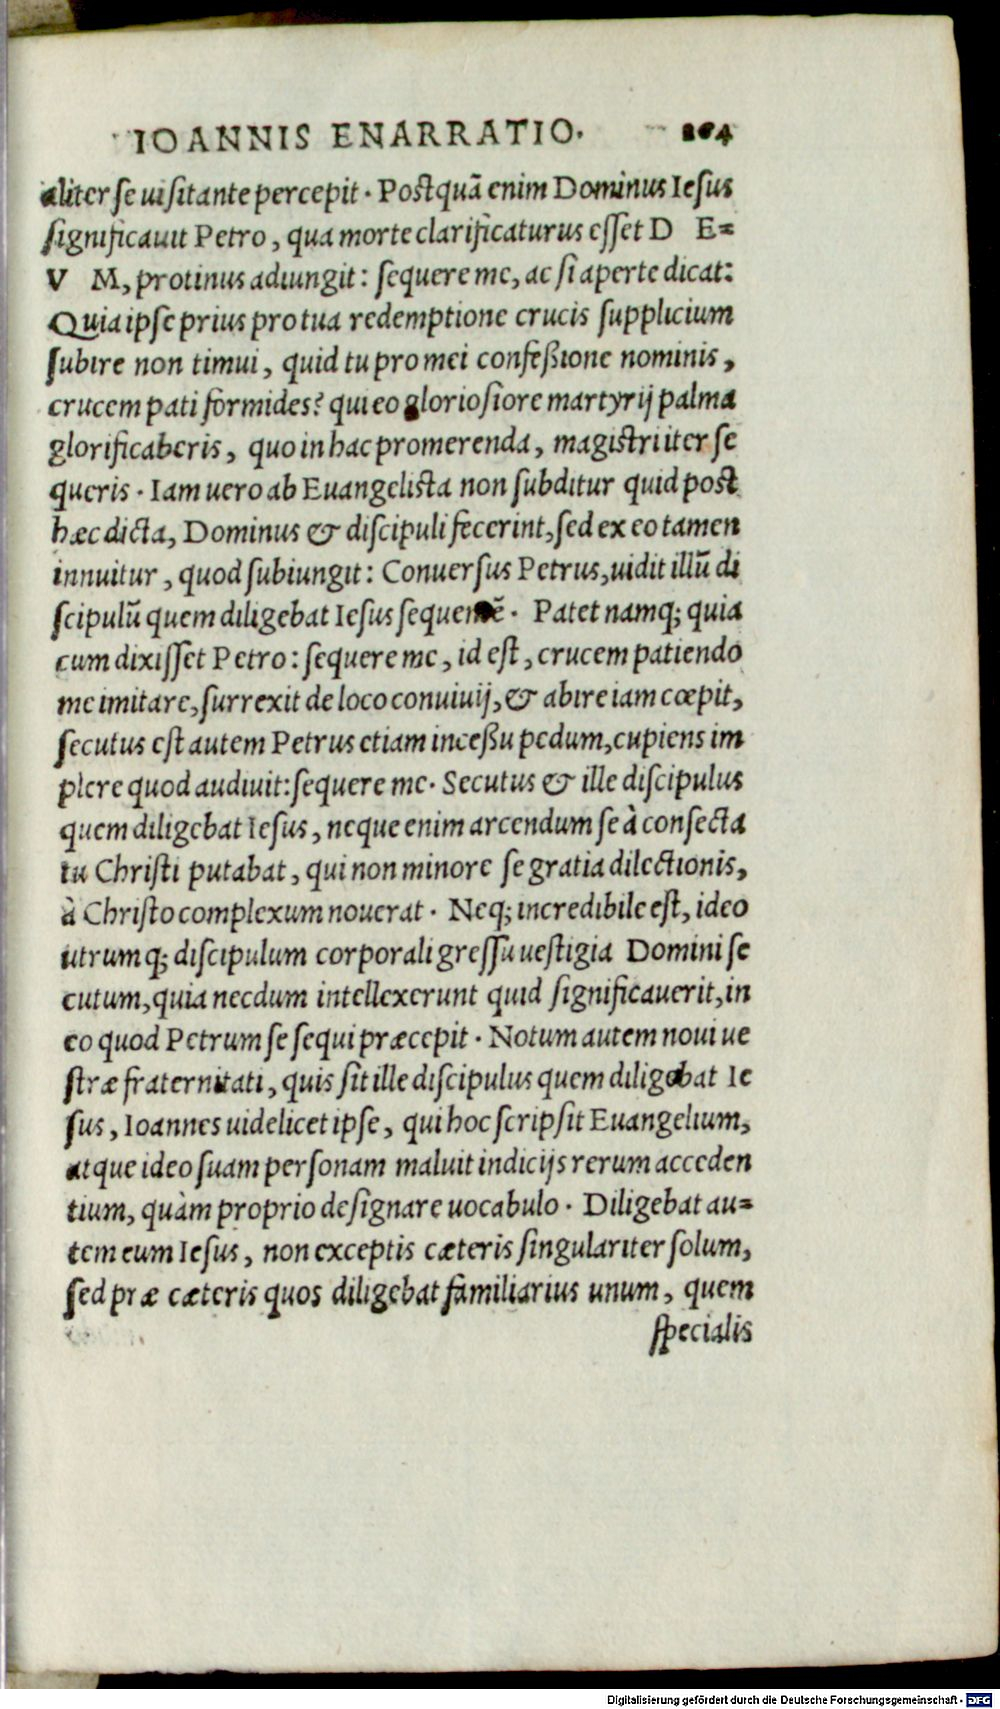 IOANNIS ENARRATIO. 204
aliter se uisitante percepit. Postquā enim Dominus Iesus
significauit Petro, qua morte clarificaturus esset D E=
V M, protinus adiungit: sequere me, ac si aperte dicat:
Quia ipse prius pro tua redemptione crucis supplicium
subire non timui, quid tu pro mei confeßione nominis,
crucem pati formides? qui eo gloriosiore martyrij palma
glorificaberis, quo in hac promerenda, magistri iter se
queris. Iam uero ab Euangelista non subditur quid post
hæc dicta, Dominus & discipuli fecerint, sed ex eo tamen
innuitur, quod subiungit: Conuersus Petrus, uidit illū di
scipulū quem diligebat Iesus sequentē. Patet namq; quia
cum dixisset Petro: sequere me, id est, crucem patiendo
me imitare, surrexit de loco conuiuij, & abire iam cœpit,
secutus est autem Petrus etiam inceßu pedum, cupiens im
plere quod audiuit: sequere me. Secutus & ille discipulus
quem diligebat Iesus, neque enim arcendum se à consecta
tu Christi putabat, qui non minore se gratia dilectionis,
à Christo complexum nouerat. Neq; incredibile est, ideo
utrumq; discipulum corporali gressu uestigia Domini se
cutum, quia necdum intellexerunt quid significauerit, in
eo quod Petrum se sequi præcepit. Notum autem noui ue
stræ fraternitati, quis sit ille discipulus quem diligebat Ie
sus, Ioannes uidelicet ipse, qui hoc scripsit Euangelium,
atque ideo suam personam maluit indicijs rerum acceden
tium, quàm proprio designare uocabulo. Diligebat au=
tem eum Iesus, non exceptis cæteris singulariter solum,
sed præ cæteris quos diligebat familiarius unum, quem
specialis
Digitalisierung gefördert durch die Deutsche Forschungsgemeinschaft - DFG